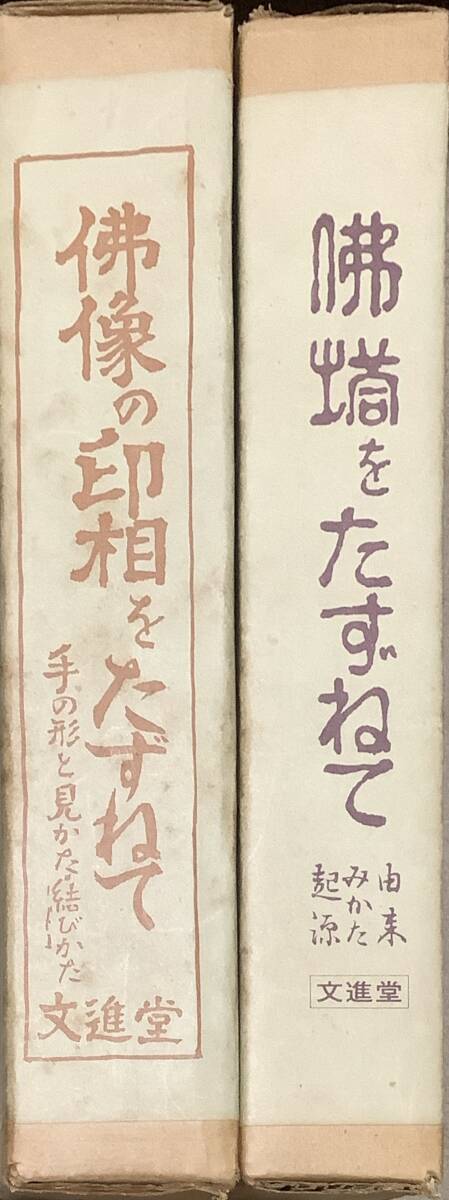 佛像の印相をたずねて
手の形と見かた・結びかた
文進堂
佛塔をたずねて
由来
みかた
起源
文進堂